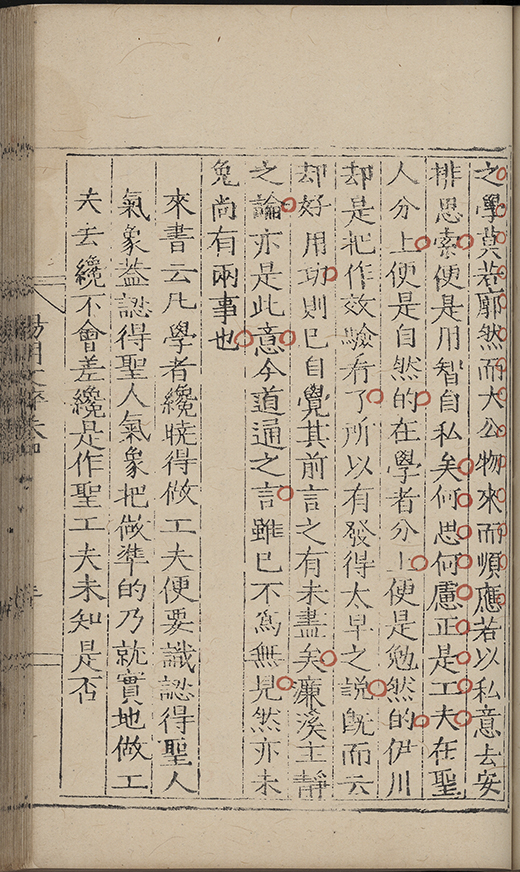 之學莫若廓然而大公物來而順應若以私意去安
排思索便是用智自私矣何思何慮正是工夫在聖
人分上便是自然的在學者分上便是勉然的伊川
却是把作效驗看了所以有發得太早之說既而云
却好用功則已自覺其前言之有未盡矣濂溪主靜
之論亦是此意今道通之言雖已不為無見然亦未
免尚有兩事也
來書云凡學者纔曉得做工夫便要識認得聖人
氣象葢認得聖人氣象把做準的乃就實地做工
夫去纔不會差纔是作聖工夫未知是否